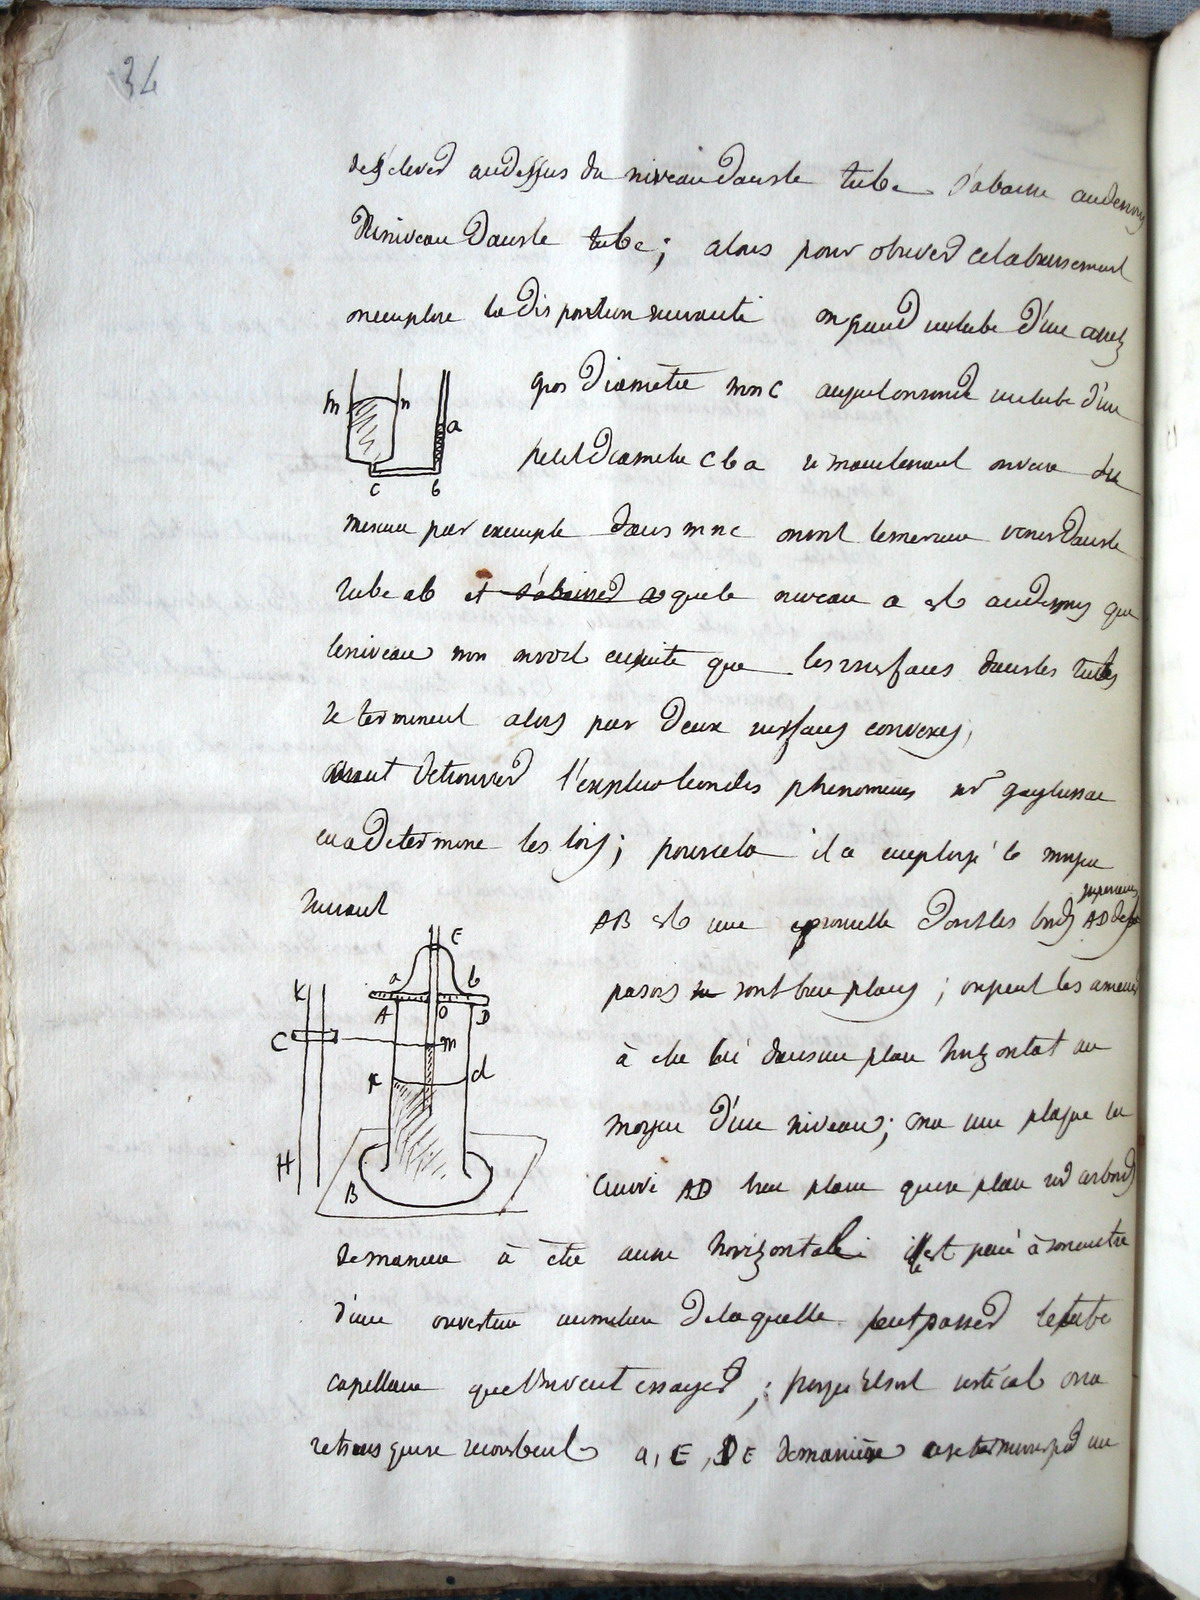 34
de s'elever audessus du niveau dans le tube s'abaisse audessous
Du niveau dans le tube; alors pour observer cet abaissement
on emploie la disposition suivante on prend un tube d'un assez
gros Diamètre mnc auquel on soude un tube d'un
petit Diametre cba si maintenant on verse du
mercure par exemple dans mnc on voit le mercure venir dans le
tube ab et s'abaisser que le niveau a est audessous que
le niveau mn on voit ensuite que les surfaces dans les tubes
se terminent alors par Deux surfaces convexes,
avant De trouver l'explication des phenomenes mr gaylussac
en a Determiné les lois; pour cela il a employé le moyen
suivant AB est une eprouvette Dont les bords AD
superieurs
sont bien plans; on peut les amener
à être dans un plan horizontal au
moyen d'un niveau; on a une plaque en
cuivre AD bien plane qui se place sur ces bords
de maniere à être aussi horizontale elle est percé à son centre
d'une ouverture au milieu De laquelle peut passer le tube
capillaire que l'on veut essayer; pour qu'il soit vertical on a
qui se recourbent a, E, DE de manière a se terminer par un
m n a c b
E a b A O D
K C m d
H B